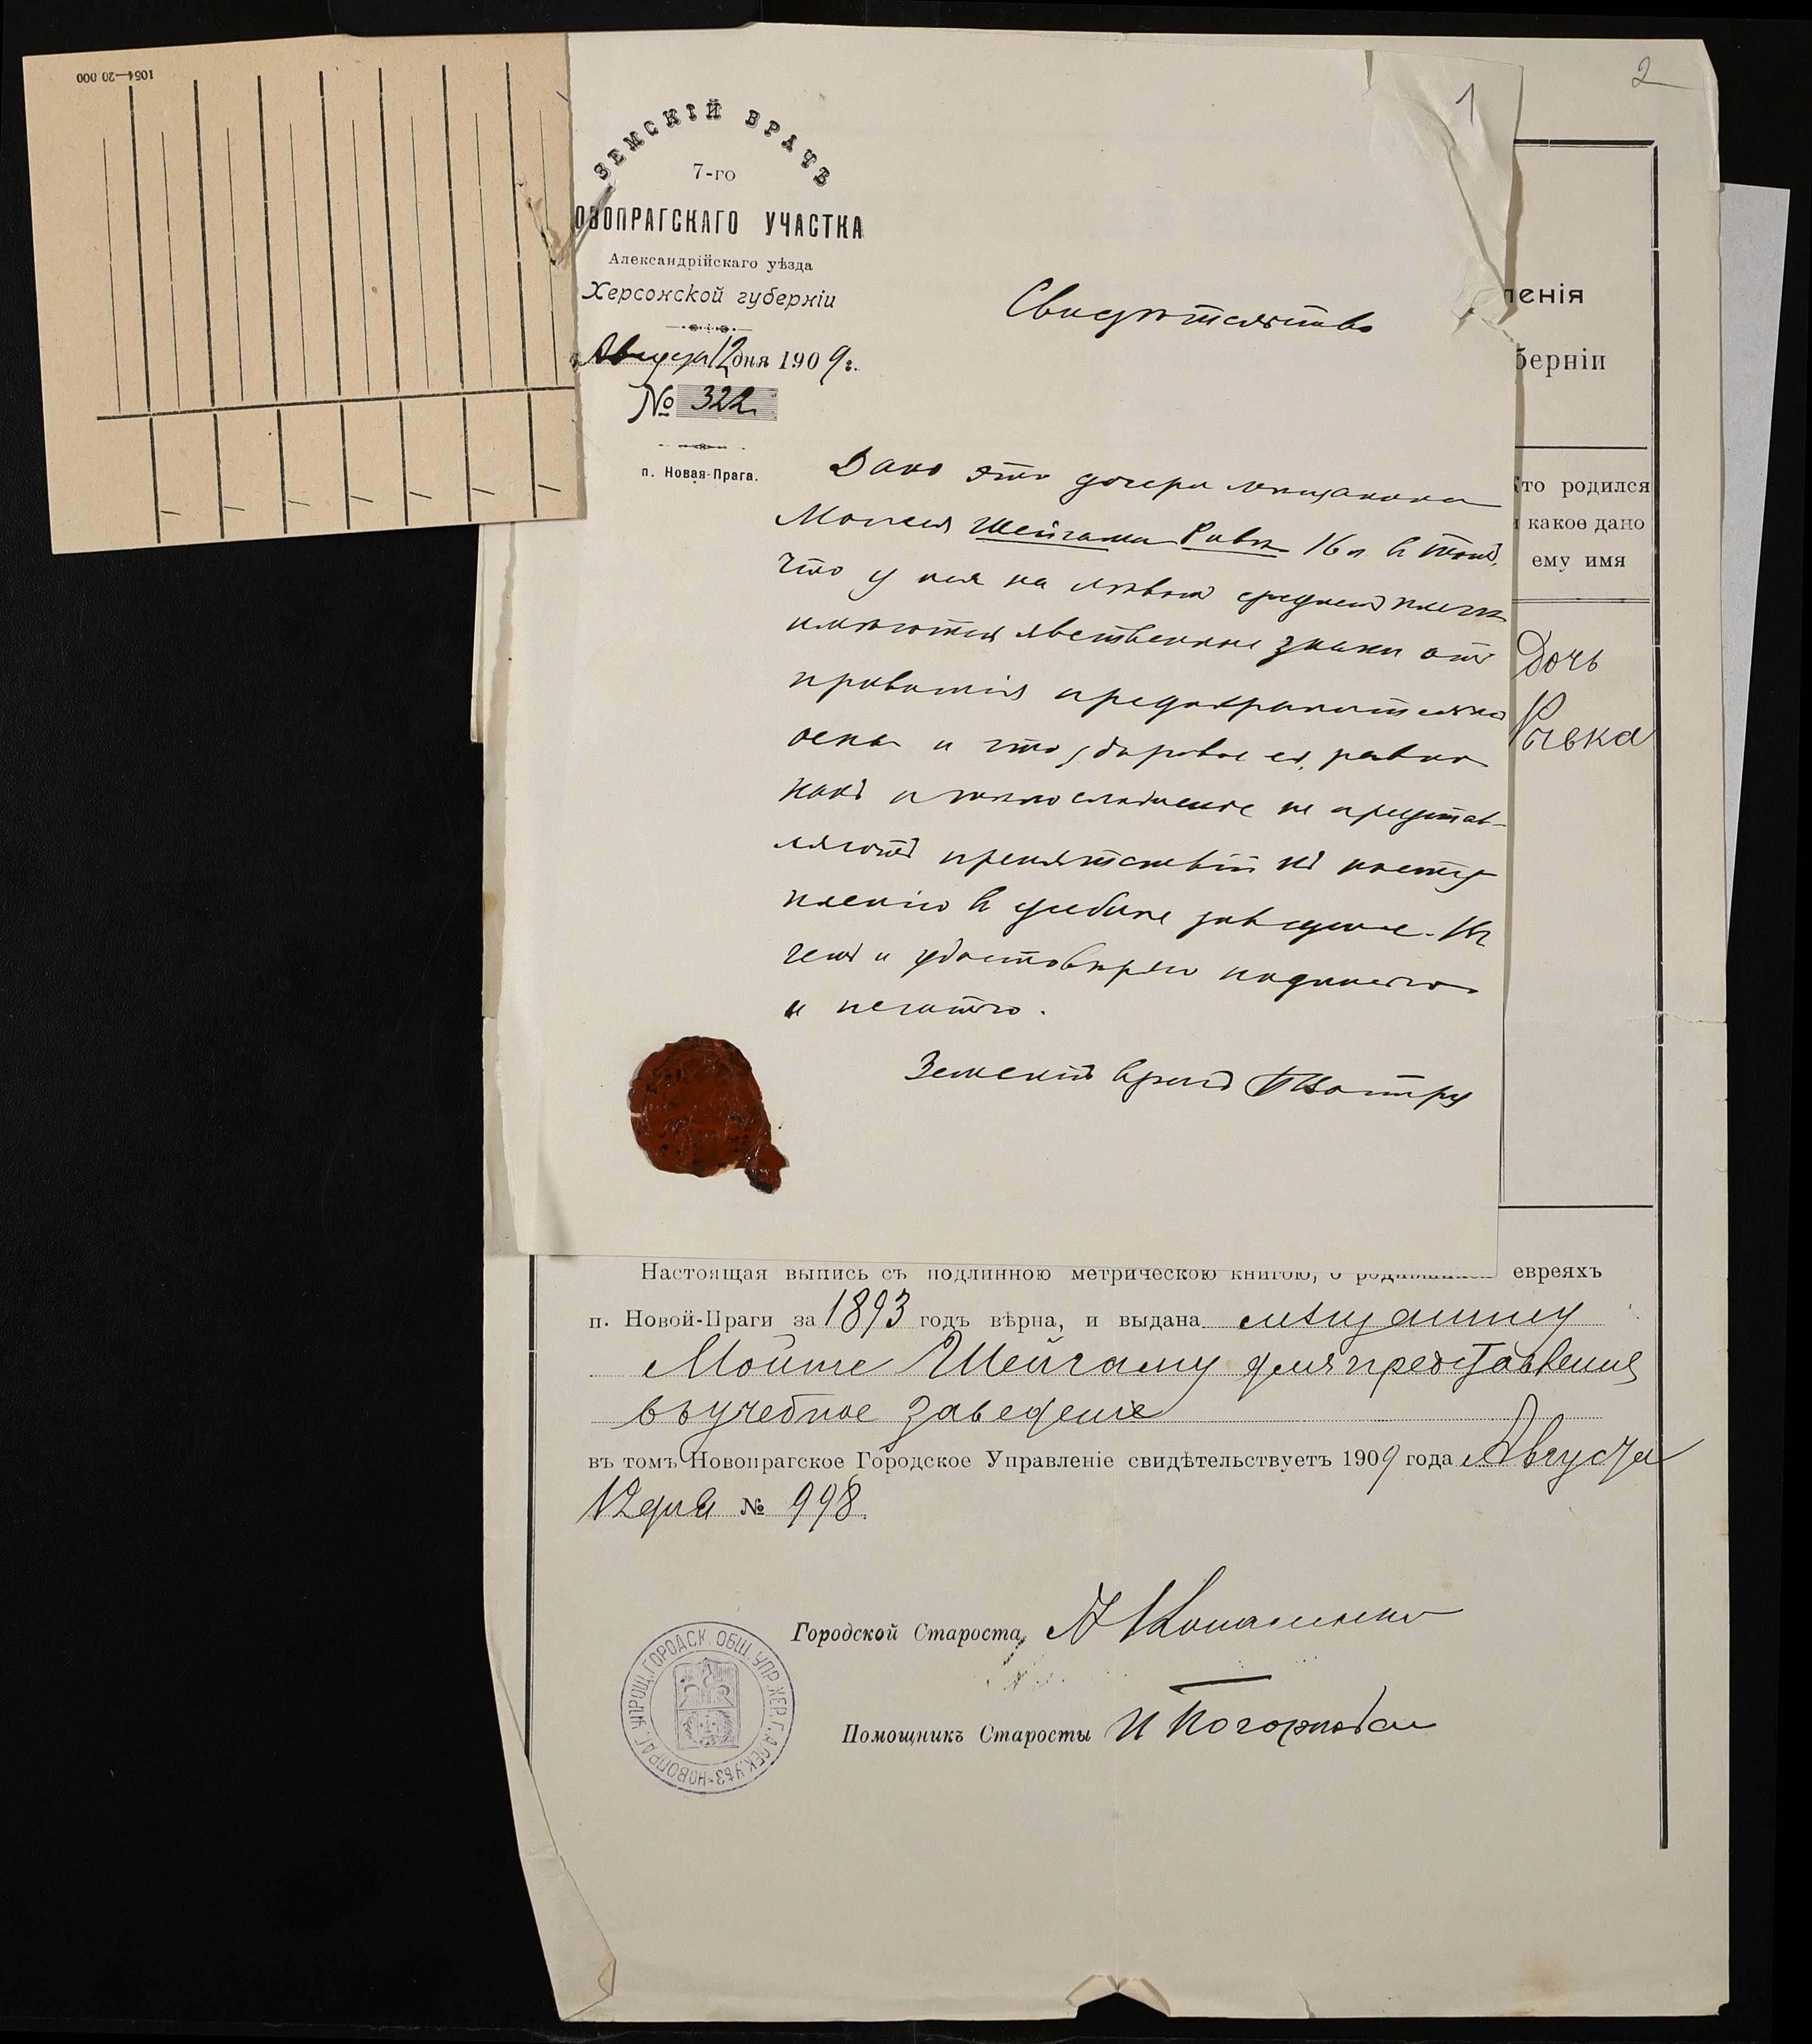 1054—20 000
2
1
ЗЕМСКІЙ ВРАЧЪ
7-го
ОВОПРАГСКАГО УЧАСТКА
Александрійскаго уѣзда
Херсонской губерніи
Августа 12 дня 1909 г.
№ 322
п. Новая-Прага.
Свидѣтельство
Дано это дочери мѣщанина
Моисея Шейгама Ривкѣ 16 л. въ томъ,
что у нея на лѣвом среднем плечѣ
имѣются явственные знаки отъ
привитія предохранительной
оспы и что здоровье ея, равно
какъ и тѣлосложеніе не представ-
ляютъ препятствій къ посту
пленію въ учебное заведеніе. Въ
чемъ и удостовѣряю подписью
и печатью.
Земскій врачъ
ленія
берніи
Кто родился
и какое дано
ему имя
Дочь
Рывка
Настоящая выпись съ подлинною метрическою книгою, о родившихся евреяхъ
п. Новой-Праги за 1893 годъ вѣрна, и выдана мѣщанину
Мойше Шейгаму для представленія
въ учебное заведеніе
въ томъ Новопрагское Городское Управленіе свидѣтельствуетъ 1909 года Августа
12 дня № 998.
Городской Староста,
Помощникъ Старосты
НОВОПРАГ. УПРОЩ. ГОРОДСК. ОБЩ. УПР. ХЕР. Г. АЛЕК. УѢЗ.